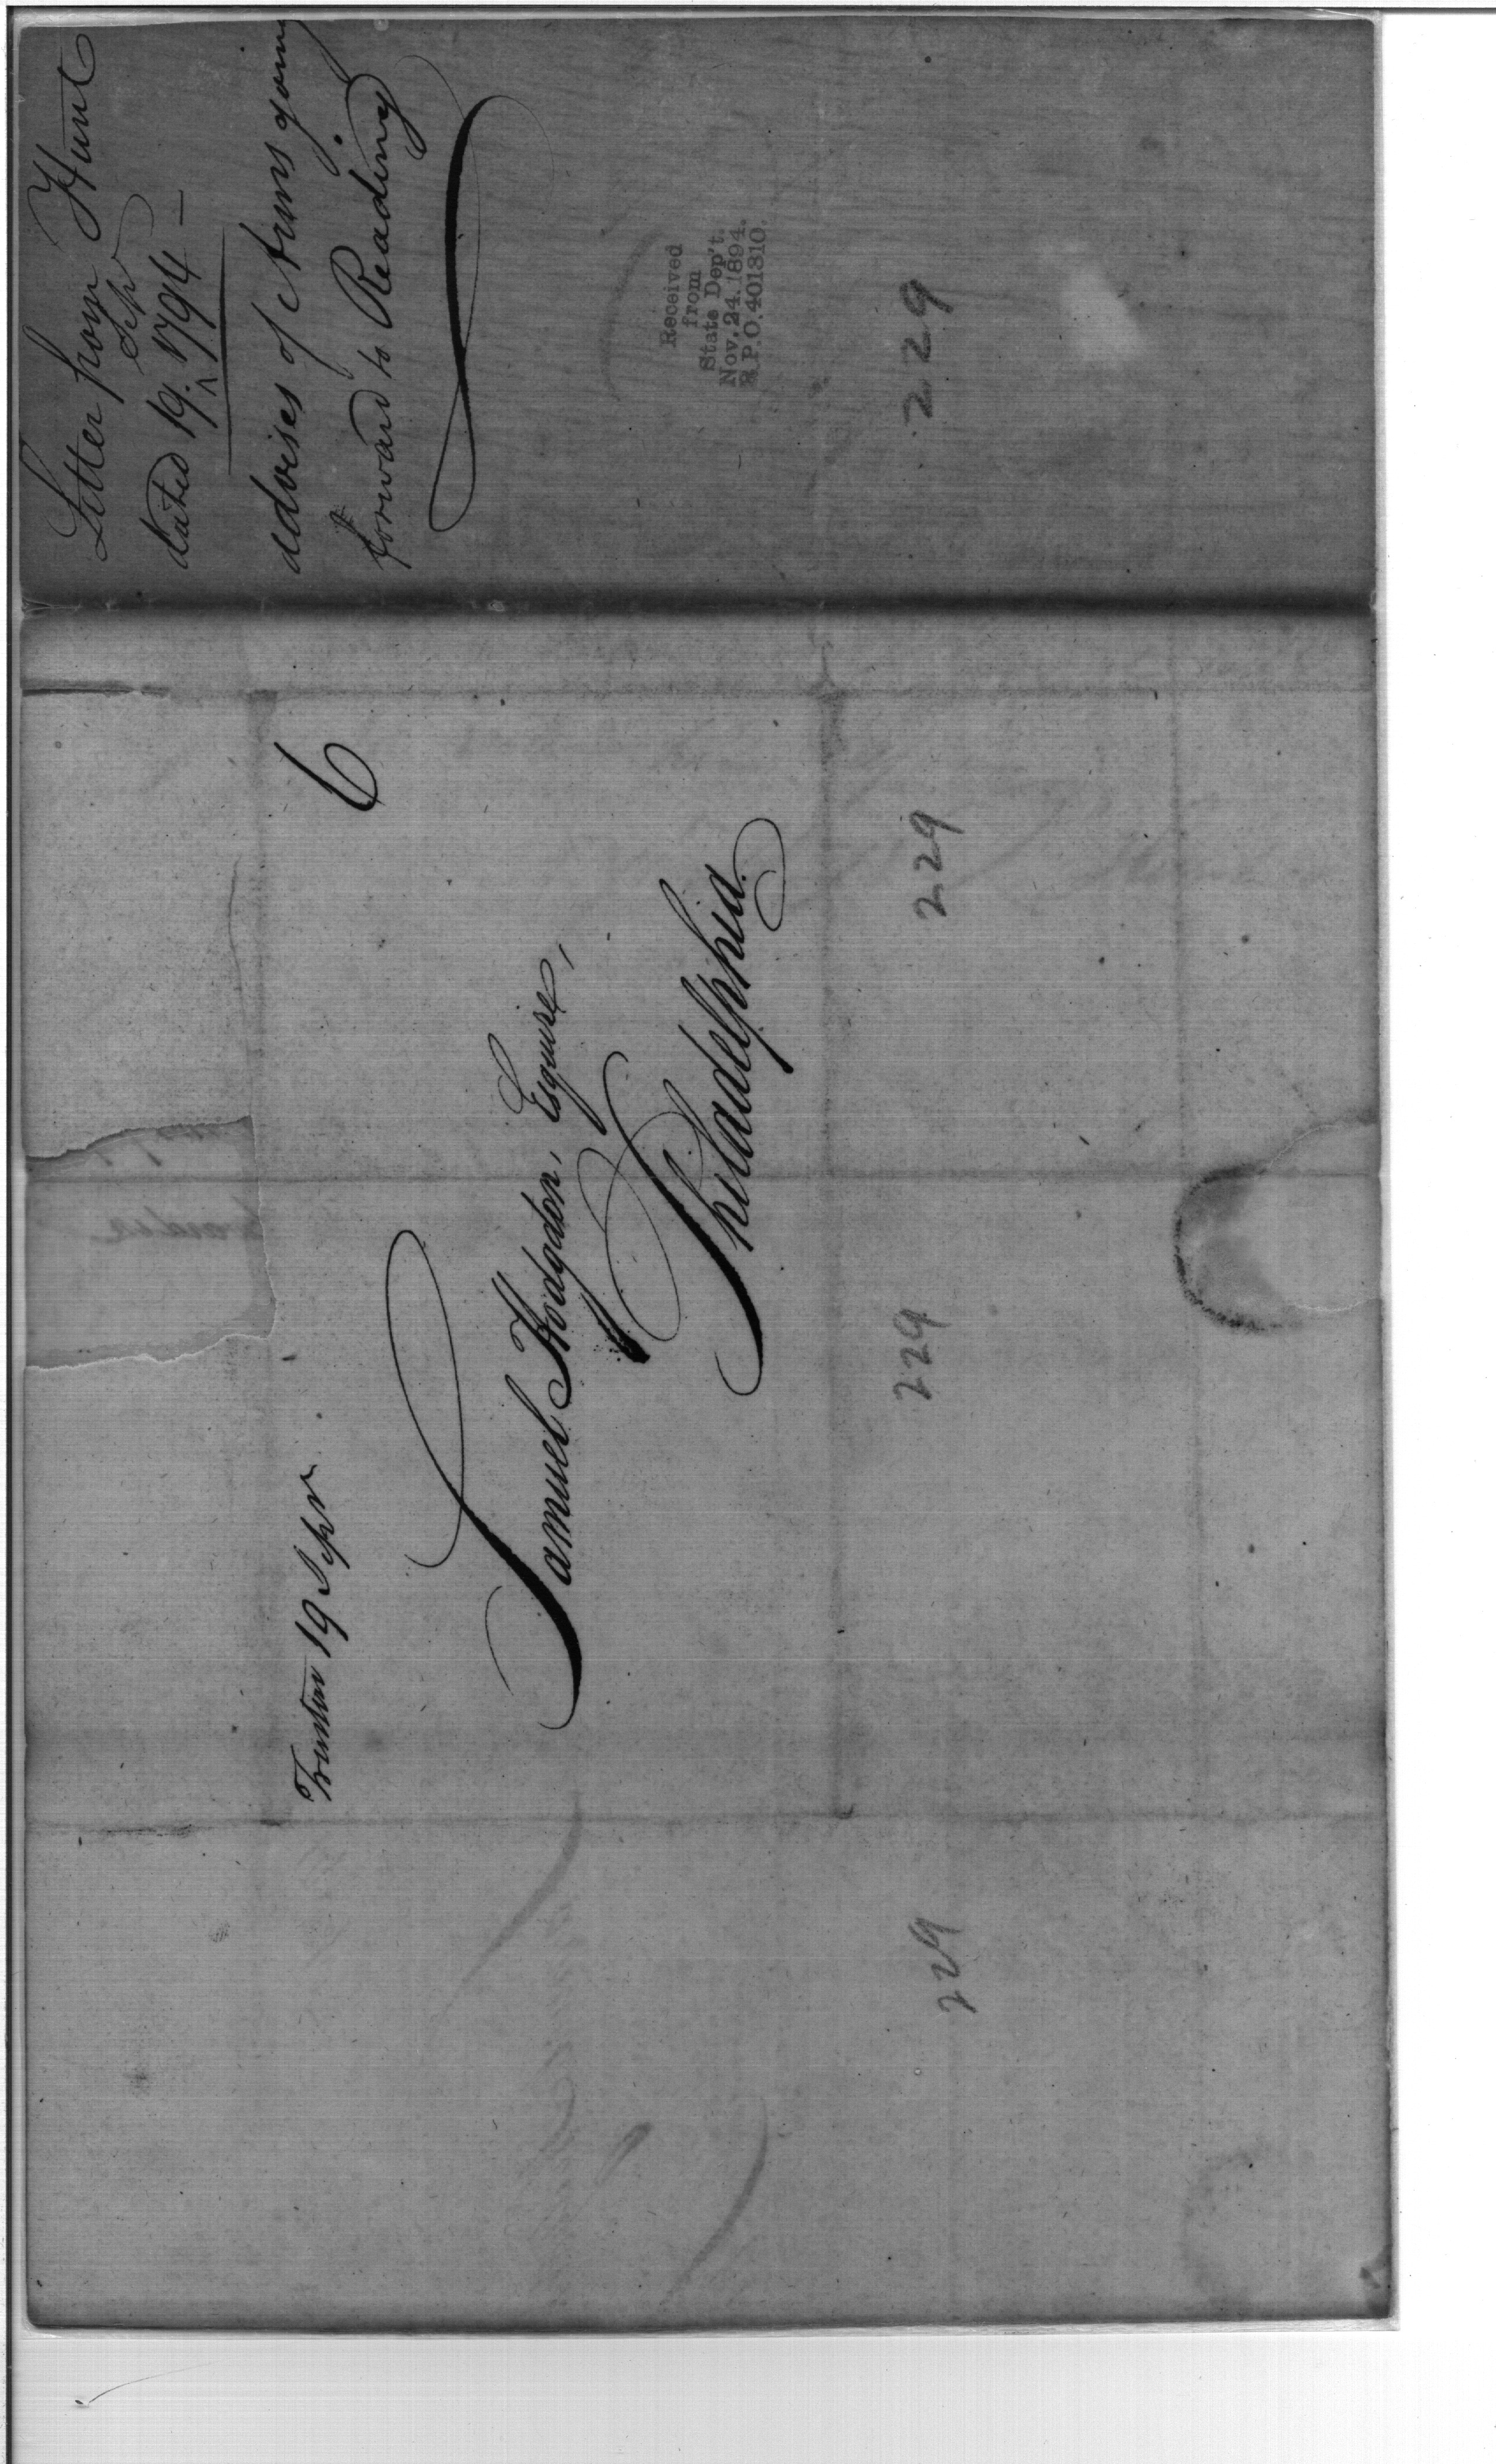 Letter from Hunt
dated 19. Sepr 1794 —
advises of Arms going
forward to Reading
Received
from
State Dep't.
Nov. 24. 1894.
R.P.O. 401310.
229
6
Trenton 19 Sepr
Samuel Hodgdon, Esquire,
Philadelphia.
229
229
229